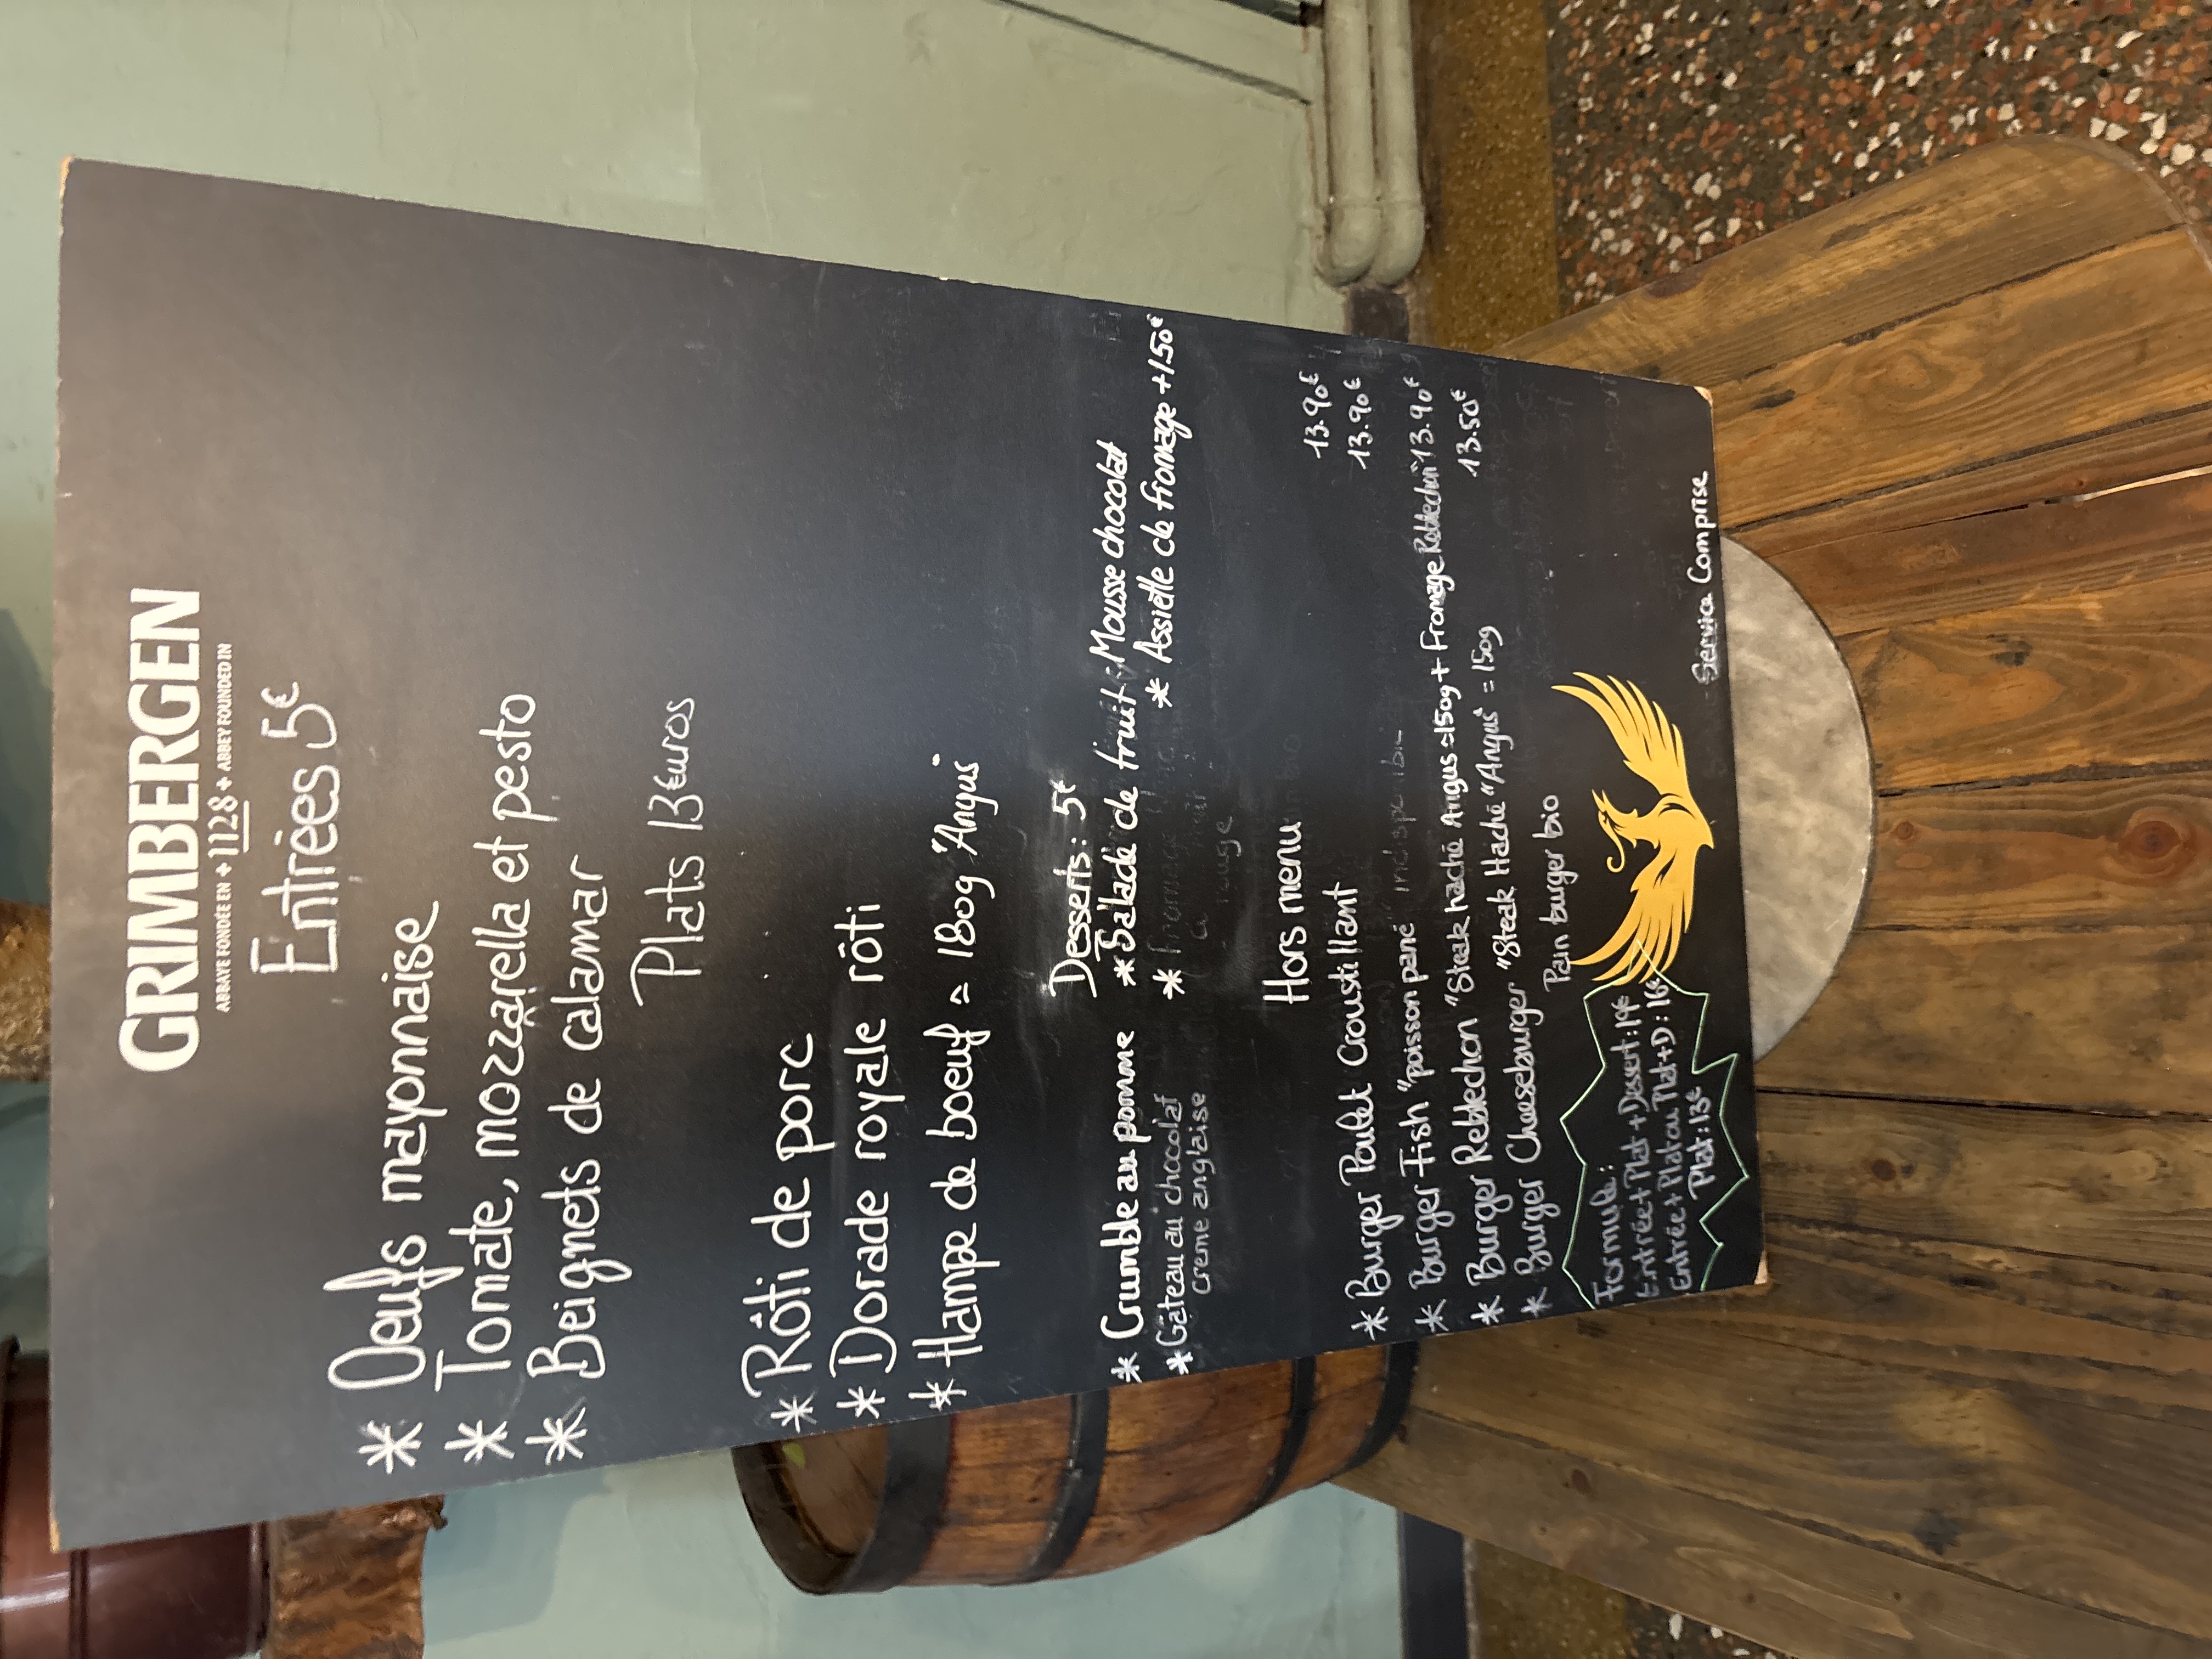 GRIMBERGEN
ABBAYE FONDÉE EN + 1128 + ABBEY FOUNDED IN
Entrées 5€
* Oeufs mayonnaise
* Tomate, mozzarella et pesto
* Beignets de calamar
Plats 13 Euros
* Rôti de porc
* Dorade royale rôti
* Hampe de boeuf = 180g "Angus"
Desserts: 5€
* Crumble au pomme * Salade de fruit * Mousse chocolat
* Gâteau au chocolat * * Assiette de fromage +1.50€
creme anglaise
Hors menu
* Burger Poulet Croustillant 13.90€
* Burger Fish "poisson pané" 13.90€
* Burger Reblechon "Steak haché Angus=150g + Fromage Reblechon" 13.90€
* Burger Cheeseburger "Steak Haché "Angus" = 150g 13.50€
Pain burger bio
Formule:
Entrée + Plat + Dessert: 19€
Entrée + Plat ou Plat + D: 16€
Plat: 13€
Service Comprise